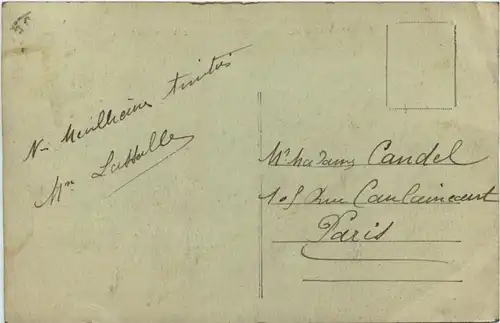 Nos Meilleures Amitiés
Mme Lassalle
Mr Madame Candel
105 Rue Caulaincourt
Paris